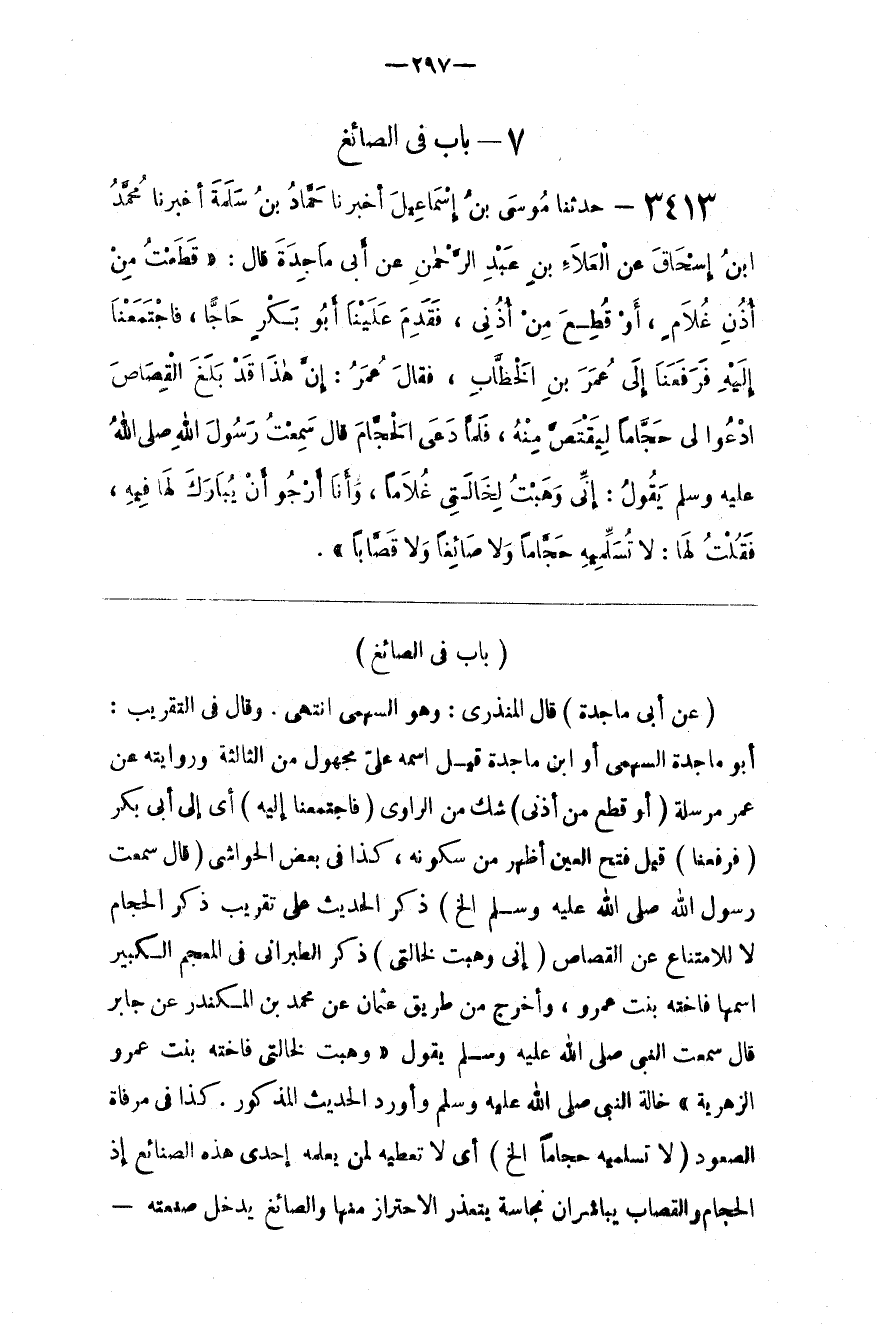 —٢٩٧—
٧ — باب فى الصائغ
٣٤١٣ — حدثنا مُوسَى بنُ إِسْمَاعِيلَ أخبرنا حَمَّادُ بنُ سَلَمَةَ أخبرنا مُحمَّدُ
ابنُ إِسْحَاقَ عن الْعَلاَءِ بنِ عَبْدِ الرَّحْمٰنِ عن أَبِى مَاجِدَةَ قال : « قَطَعْتُ مِنْ
أُذُنِ غُلاَمٍ ، أَوْ قُطِعَ مِنْ أُذُنِى ، فَقَدِمَ عَلَيْنَا أَبُو بَكْرٍ حَاجًّا ، فاجْتَمَعْنَا
إِلَيْهِ فَرَفَعَنَا إِلَى عُمَرَ بنِ الْخَطَّابِ ، فقالَ عُمَرُ : إِنَّ هٰذَا قَدْ بَلَغَ الْقِصَاصَ
ادْعُوا لى حَجَّاماً لِيَقْتَصَّ مِنْهُ ، فَلَمَّا دَعَى الْحَجَّامَ قال سَمِعْتُ رَسُولَ اللهِ صلى اللهُ
عليه وسلم يَقُولُ : إِنِّى وَهَبْتُ لِخَالَتِى غُلاَماً ، وَأَنَا أَرْجُو أَنْ يُبَارَكَ لَهَا فِيهِ ،
فَقُلْتُ لَهَا : لا تُسَلِّمِيهِ حَجَّاماً وَلا صَائِغاً وَلا قَصَّاباً » .
( باب فى الصائغ )
( عن أبى ماجدة ) قال المنذرى : وهو السهمى انتهى . وقال فى التقريب :
أبو ماجدة السهمى أو ابن ماجدة قيل اسمه علىّ مجهول من الثالثة وروايته عن
عمر مرسلة ( أو قطع من أذنى ) شك من الراوى ( فاجتمعنا إليه ) أى إلى أبى بكر
( فرفعنا ) قيل فتح العين أظهر من سكونه ، كذا فى بعض الحواشى ( قال سمعت
رسول الله صلى الله عليه وسلم الخ ) ذكر الحديث على تقريب ذكر الحجام
لا للامتناع عن القصاص ( إنى وهبت لخالتى ) ذكر الطبرانى فى المعجم الكبير
اسمها فاخته بنت عمرو ، وأخرج من طريق عثمان عن محمد بن المكندر عن جابر
قال سمعت النبى صلى الله عليه وسلم يقول « وهبت لخالتى فاخته بنت عمرو
الزهرية » خالة النبى صلى الله عليه وسلم وأورد الحديث المذكور . كذا فى مرقاة
الصعود ( لا تسلميه حجاماً الخ ) أى لا تعطيه لمن يعلمه إحدى هذه الصنائع إذ
الحجام والقصاب يباشران نجاسة يتعذر الاحتراز منها والصائغ يدخل صنعته —